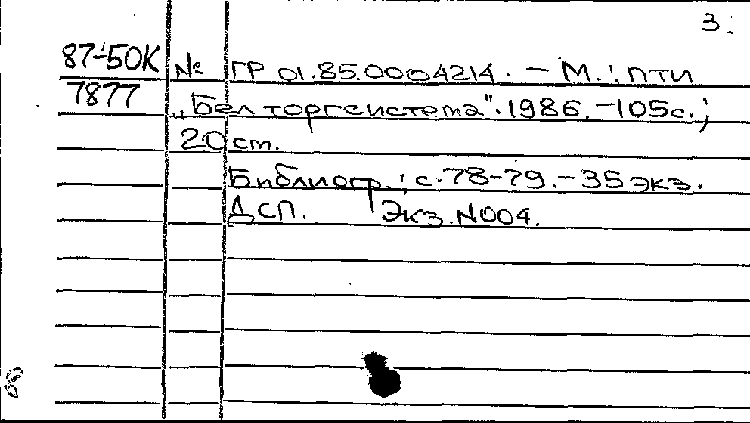 3.
87-50К № ГР 01.85.0004214. - М.: ПТИ
7877 „Белторгсистема". 1986. - 105 с.;
20 ст.
Библиогр.: с. 78-79. - 35 экз.
ДСП. Экз. N004.
8